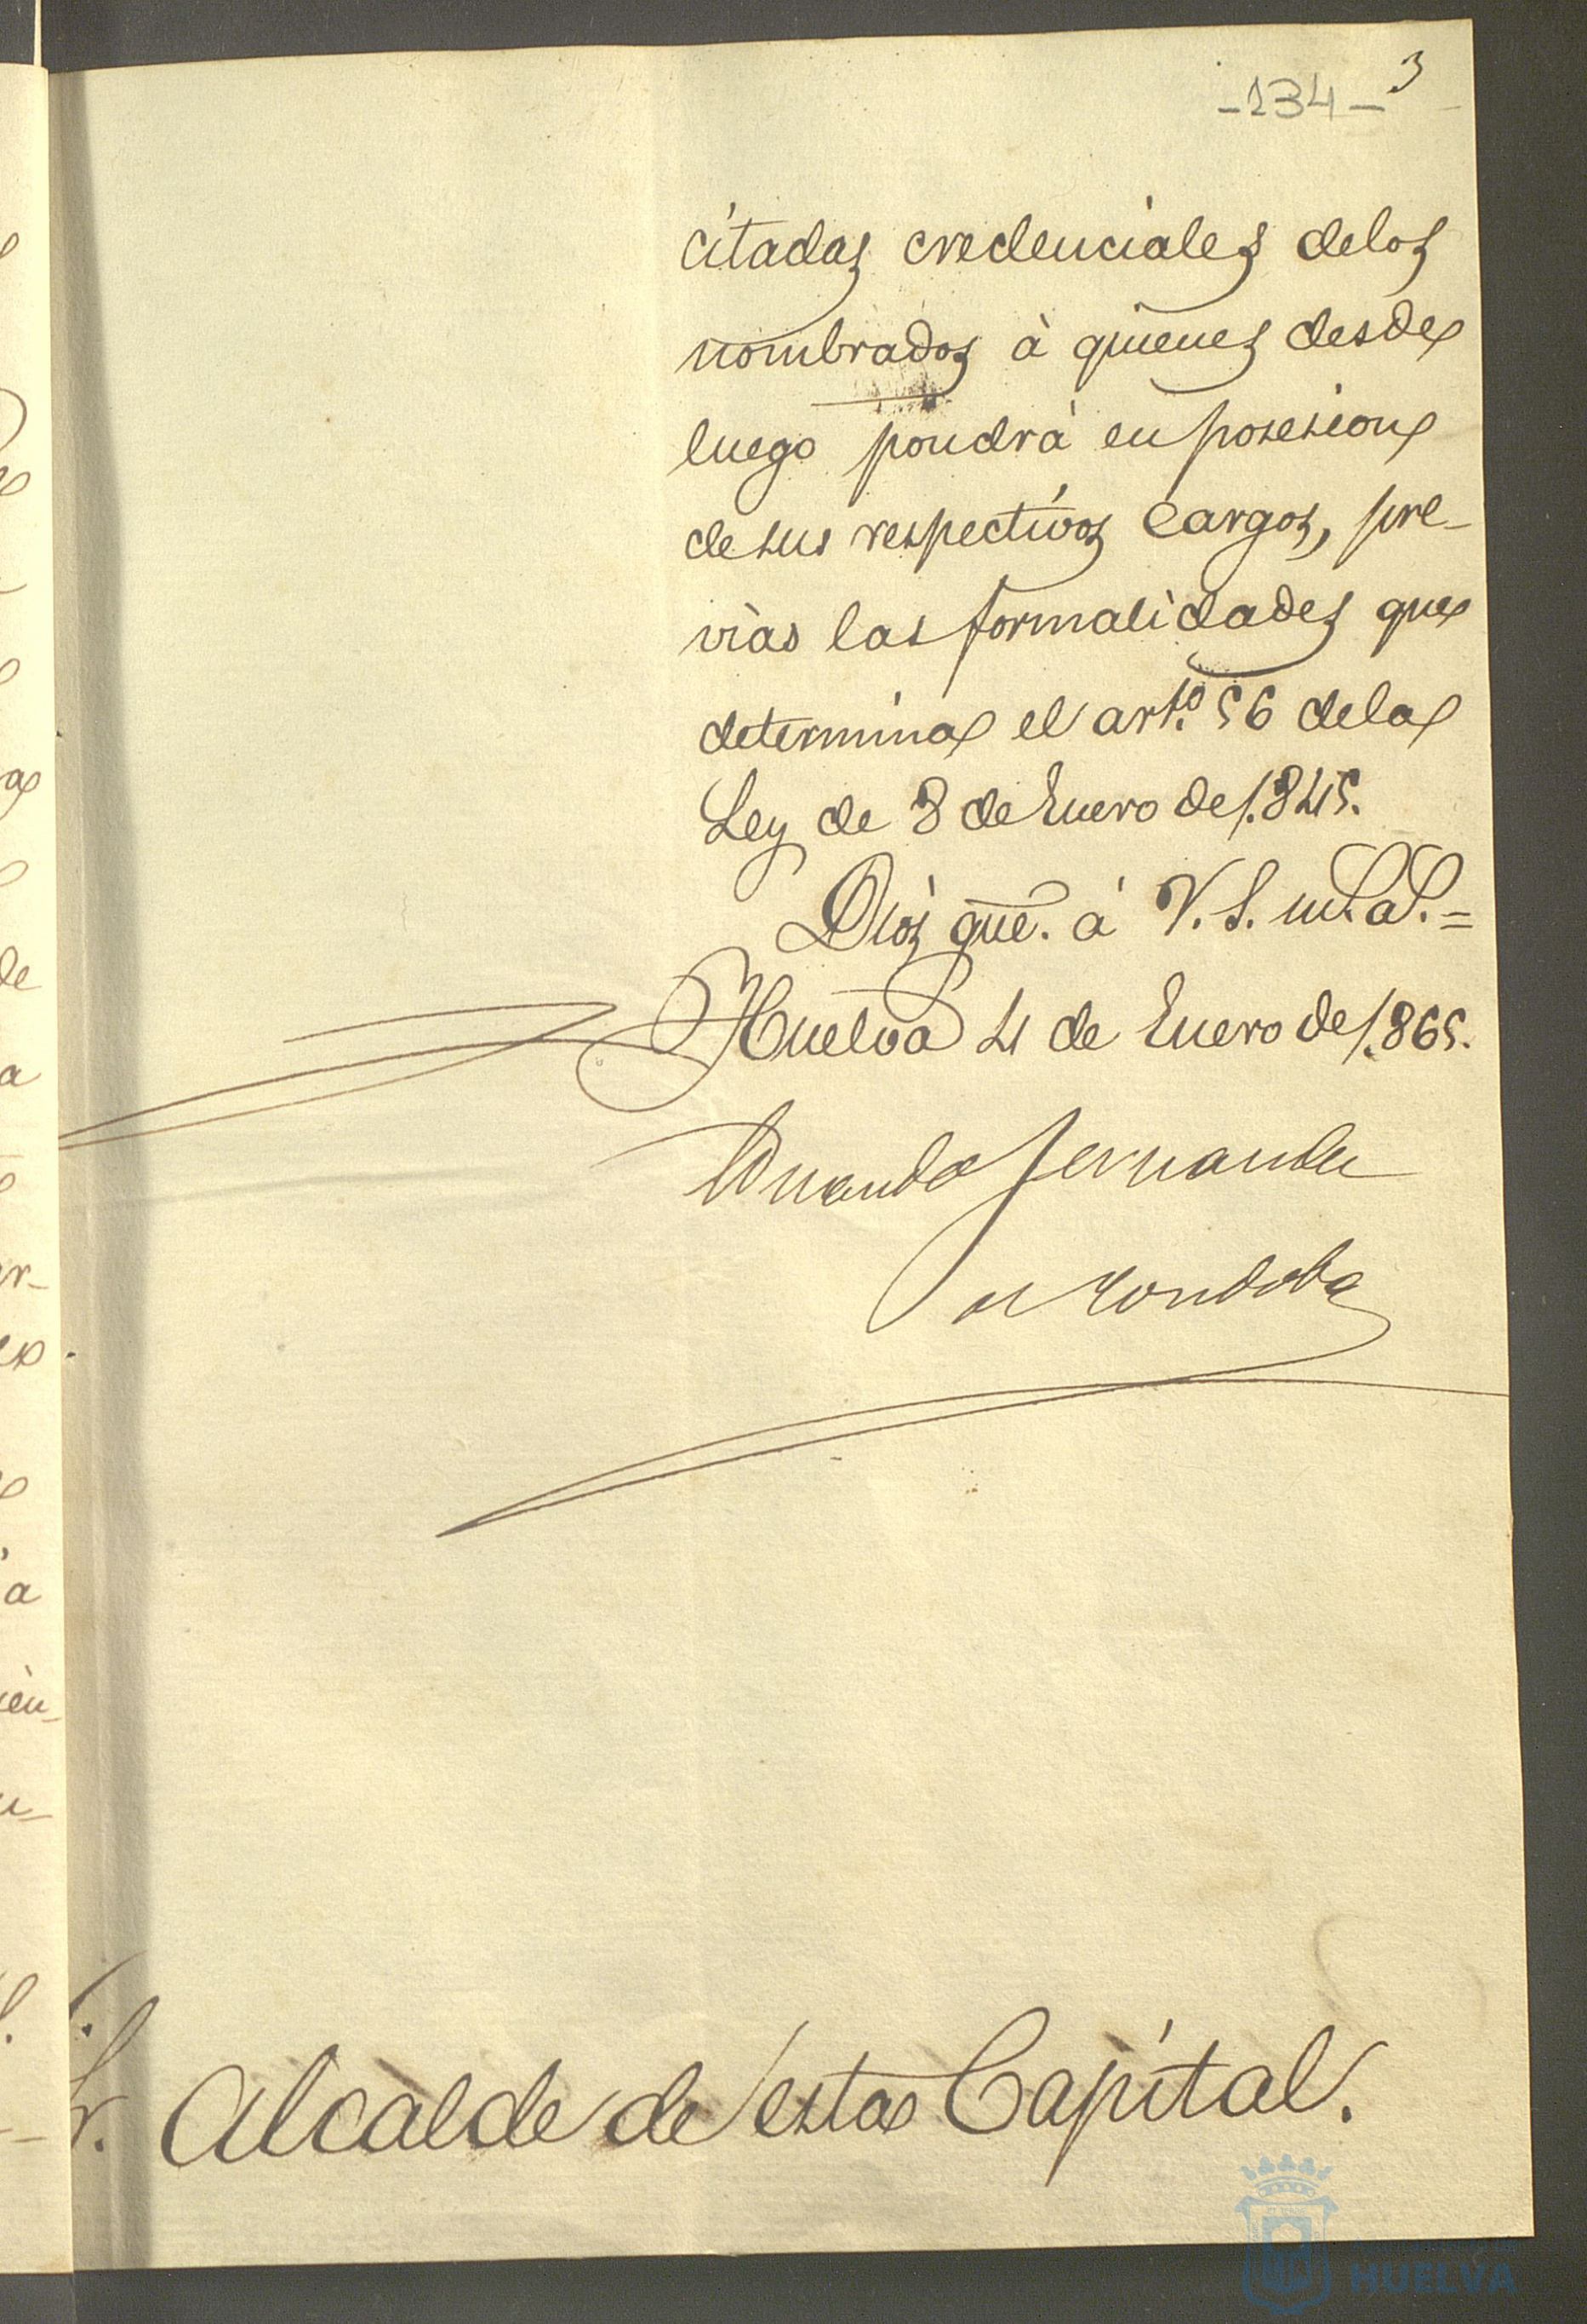 -134- 3
citadas credenciales delos
nombrados à quienes desde
luego pondrá en posesion
de sus respectivos cargos, pre-
vias las formalidades que
determina el artº. 56 dela
Ley de 8 de Enero de 1.845.
Dios gue. á V.S. m.s a.s.=
Huelva 4 de Enero de 1.865.
Fernandez
de Cordoba
Sr. Alcalde de esta Capital.
HUELVA